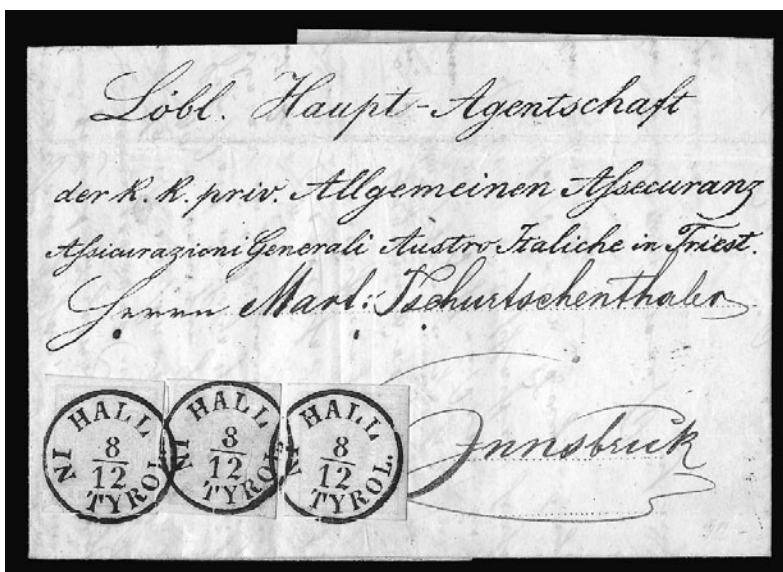 Löbl. Haupt-Agentschaft
der k. k. priv. Allgemeinen Assecuranz
Assicurazioni Generali Austro Italiche in Triest.
Herrn Mart: Tschurtschenthaler
Innsbruck
HALL
8
12
IN TYROL.
HALL
8
12
IN TYROL.
HALL
8
12
IN TYROL.